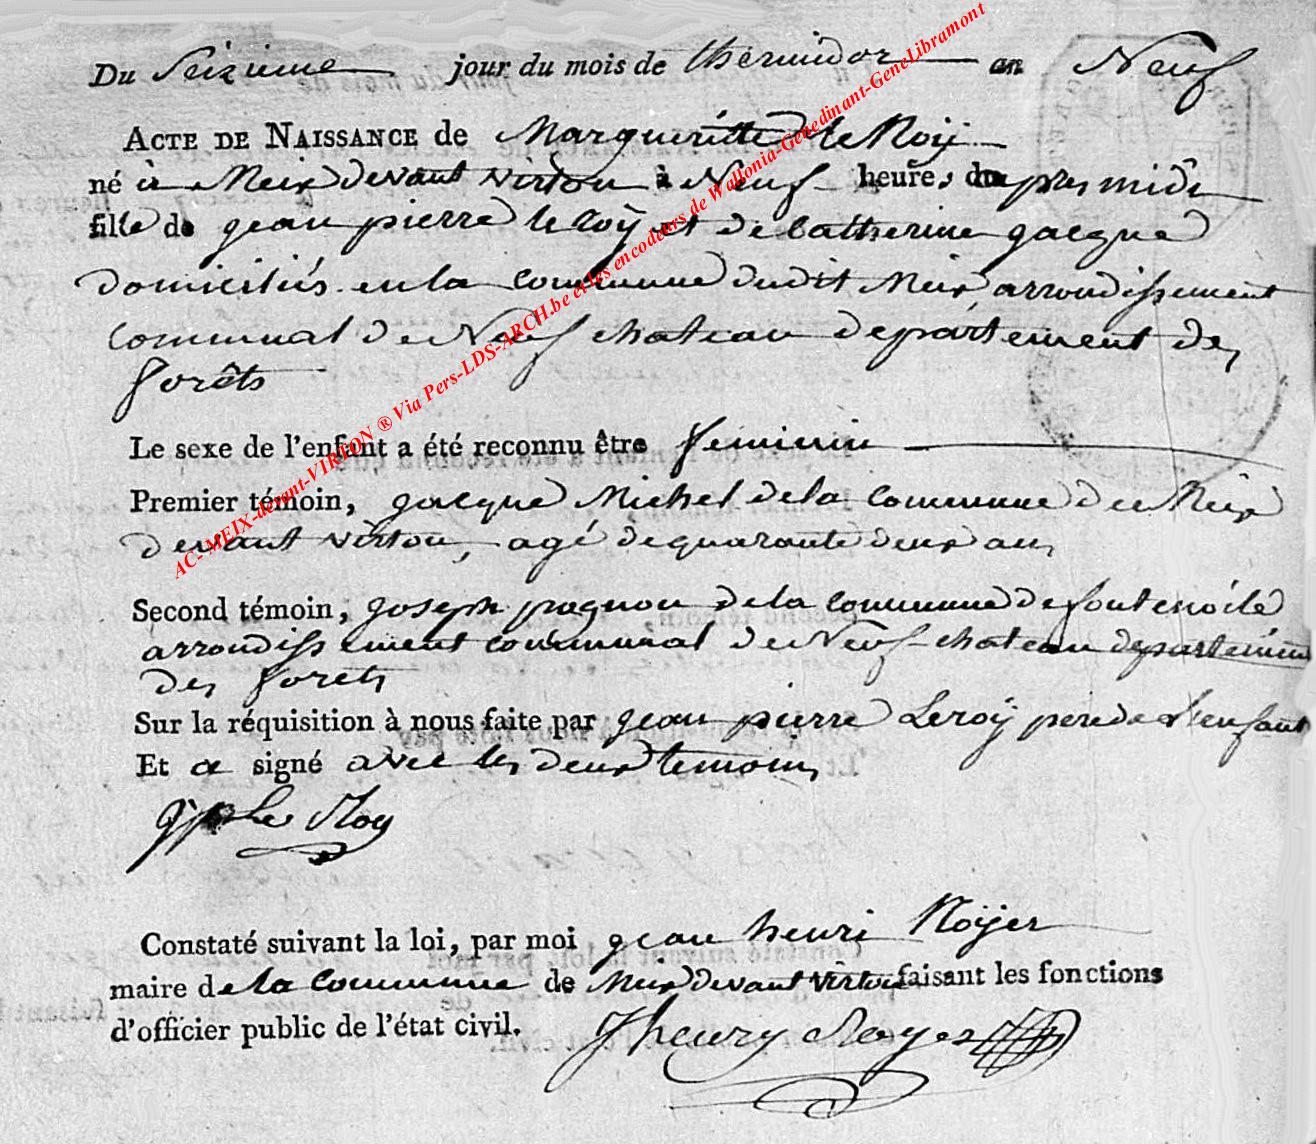 Du Seizieme jour du mois de thermidor an Neuf
ACTE DE NAISSANCE de Margueritte le Roÿ
né à Meix devant virton à Neuf heures du apres midi
fille de jean pierre le roÿ et de Catherine jacque
domiciliés en la commune dudit Meix arrondissement
communal de Neufchateau departement des
forêts
Le sexe de l'enfant a été reconnu être feminin
Premier témoin, jacque Michel de la commune de Meix
devant virton, agé de quarante deux ans
Second témoin, joseph pognon de la commune de fontenoille
arrondissement communal de Neuf-chateau departement
des forêts
Sur la réquisition à nous faite par jean pierre Leroÿ pere de l'enfant
Et a signé avec les deux temoins
jp Le Roy
Constaté suivant la loi, par moi jean henri Roÿer
maire de la commune de Meix devant virton faisant les fonctions
d'officier public de l'état civil.
J henry Royer
AC- MEIX-devant-VIRTON ® Via Pers-LDS-ARCH.be et les encodeurs de Wallonia-Genedinant-GeneLibramont